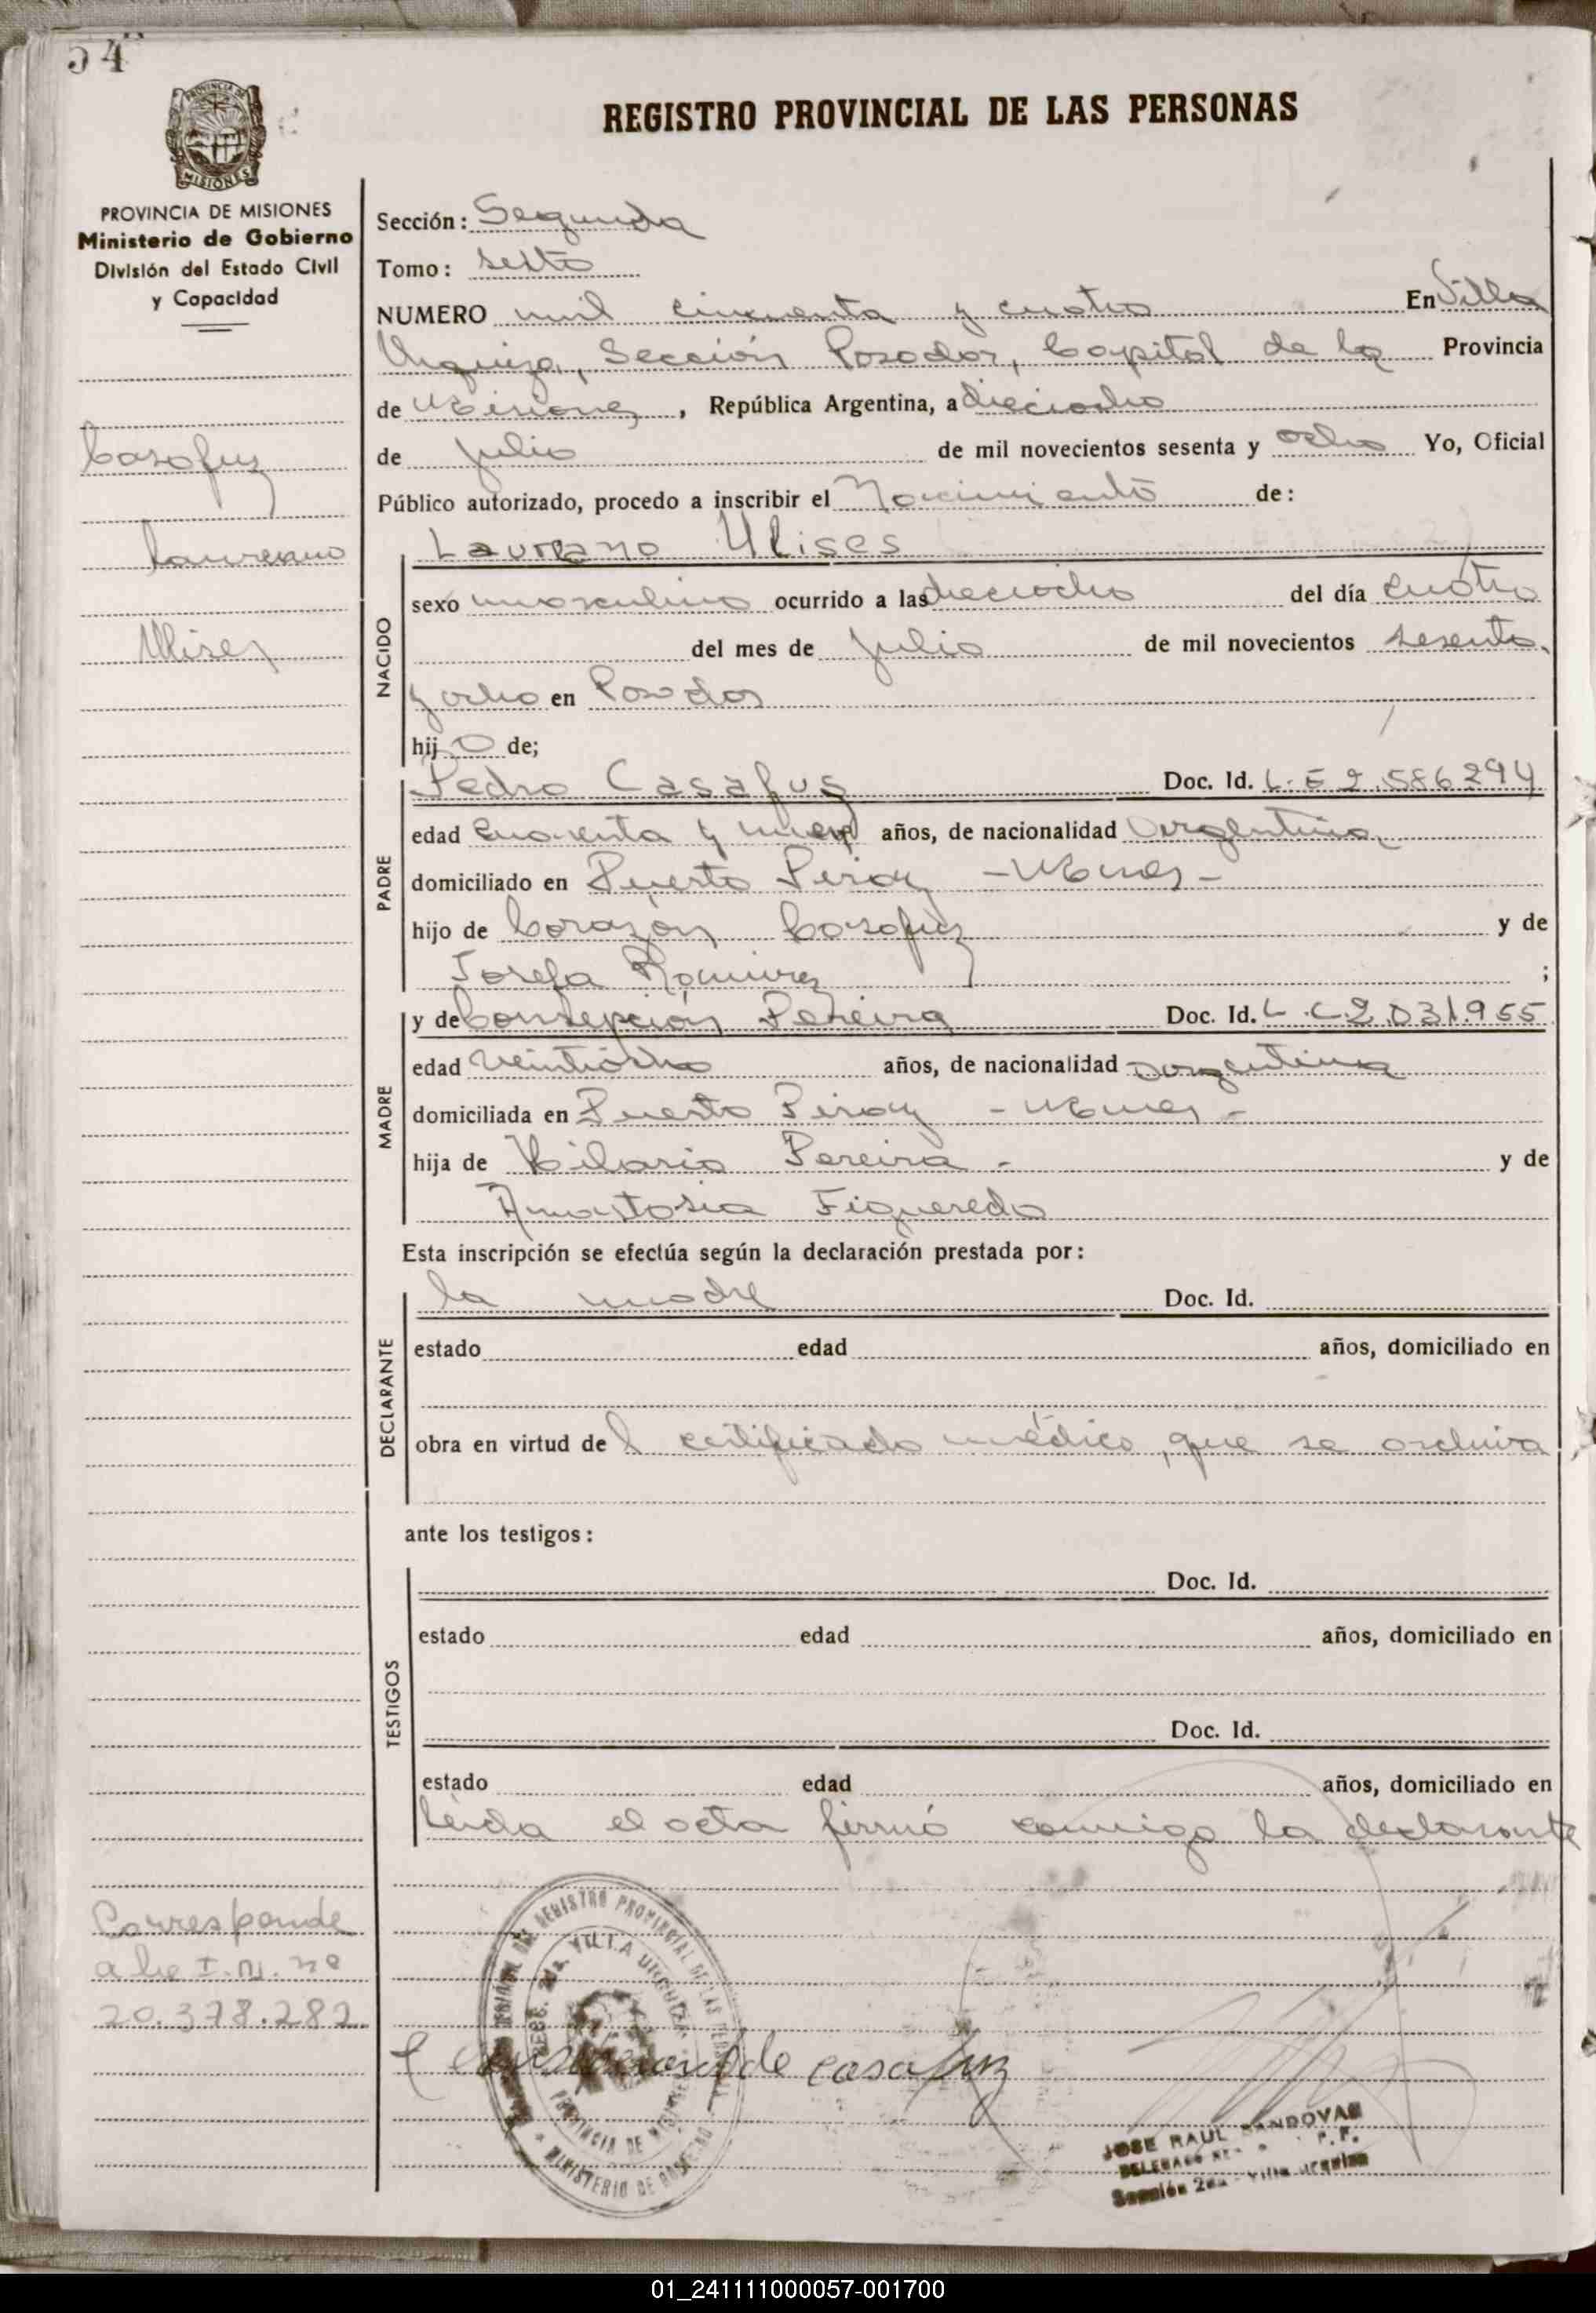 54
REGISTRO PROVINCIAL DE LAS PERSONAS
PROVINCIA DE MISIONES
Ministerio de Gobierno
División del Estado Civil
y Capacidad
Casafuz
Laureano
Ulises
Sección: Segunda
Tomo: sexto
NUMERO mil cincuenta y cuatro En Villa
Urquiza, Sección Posadas, Capital de la Provincia
de Misiones, República Argentina, a dieciocho
de julio de mil novecientos sesenta y ocho Yo, Oficial
Público autorizado, procedo a inscribir el Nacimiento de:
Laureano Ulises
NACIDO
sexo masculino ocurrido a las dieciocho del día cuatro
del mes de julio de mil novecientos sesenta
y ocho en Posadas
hijo de;
PADRE
Pedro Casafus Doc. Id. L. E 2.586294
edad cuarenta y nueve años, de nacionalidad Argentina
domiciliado en Puerto Piray - Mnes -
hijo de Corazón Casafuz y de
Josefa Ramirez ;
MADRE
y de Consepción Pereira Doc. Id. L.C 2.031.955
edad veintiocho años, de nacionalidad argentina
domiciliada en Puerto Piray - Mnes -
hija de Hilario Pereira - y de
Anastasia Figueredo
Esta inscripción se efectúa según la declaración prestada por:
DECLARANTE
la madre Doc. Id.
estado edad años, domiciliado en
obra en virtud del certificado médico, que se archiva
ante los testigos:
TESTIGOS
Doc. Id.
estado edad años, domiciliado en
Doc. Id.
estado edad años, domiciliado en
Leida el acta firmó conmigo la declarante
Corresponde
a la I.M. nº
20.378.282
REGISTRO PROVINCIAL DE LAS
VILLA URQUIZA
PROVINCIA DE
MINISTERIO DE GOBIERNO
de casafuz
JOSE RAUL SANDOVAL
DELEGADO
Sección 2da - Villa Urquiza
01_241111000057-001700